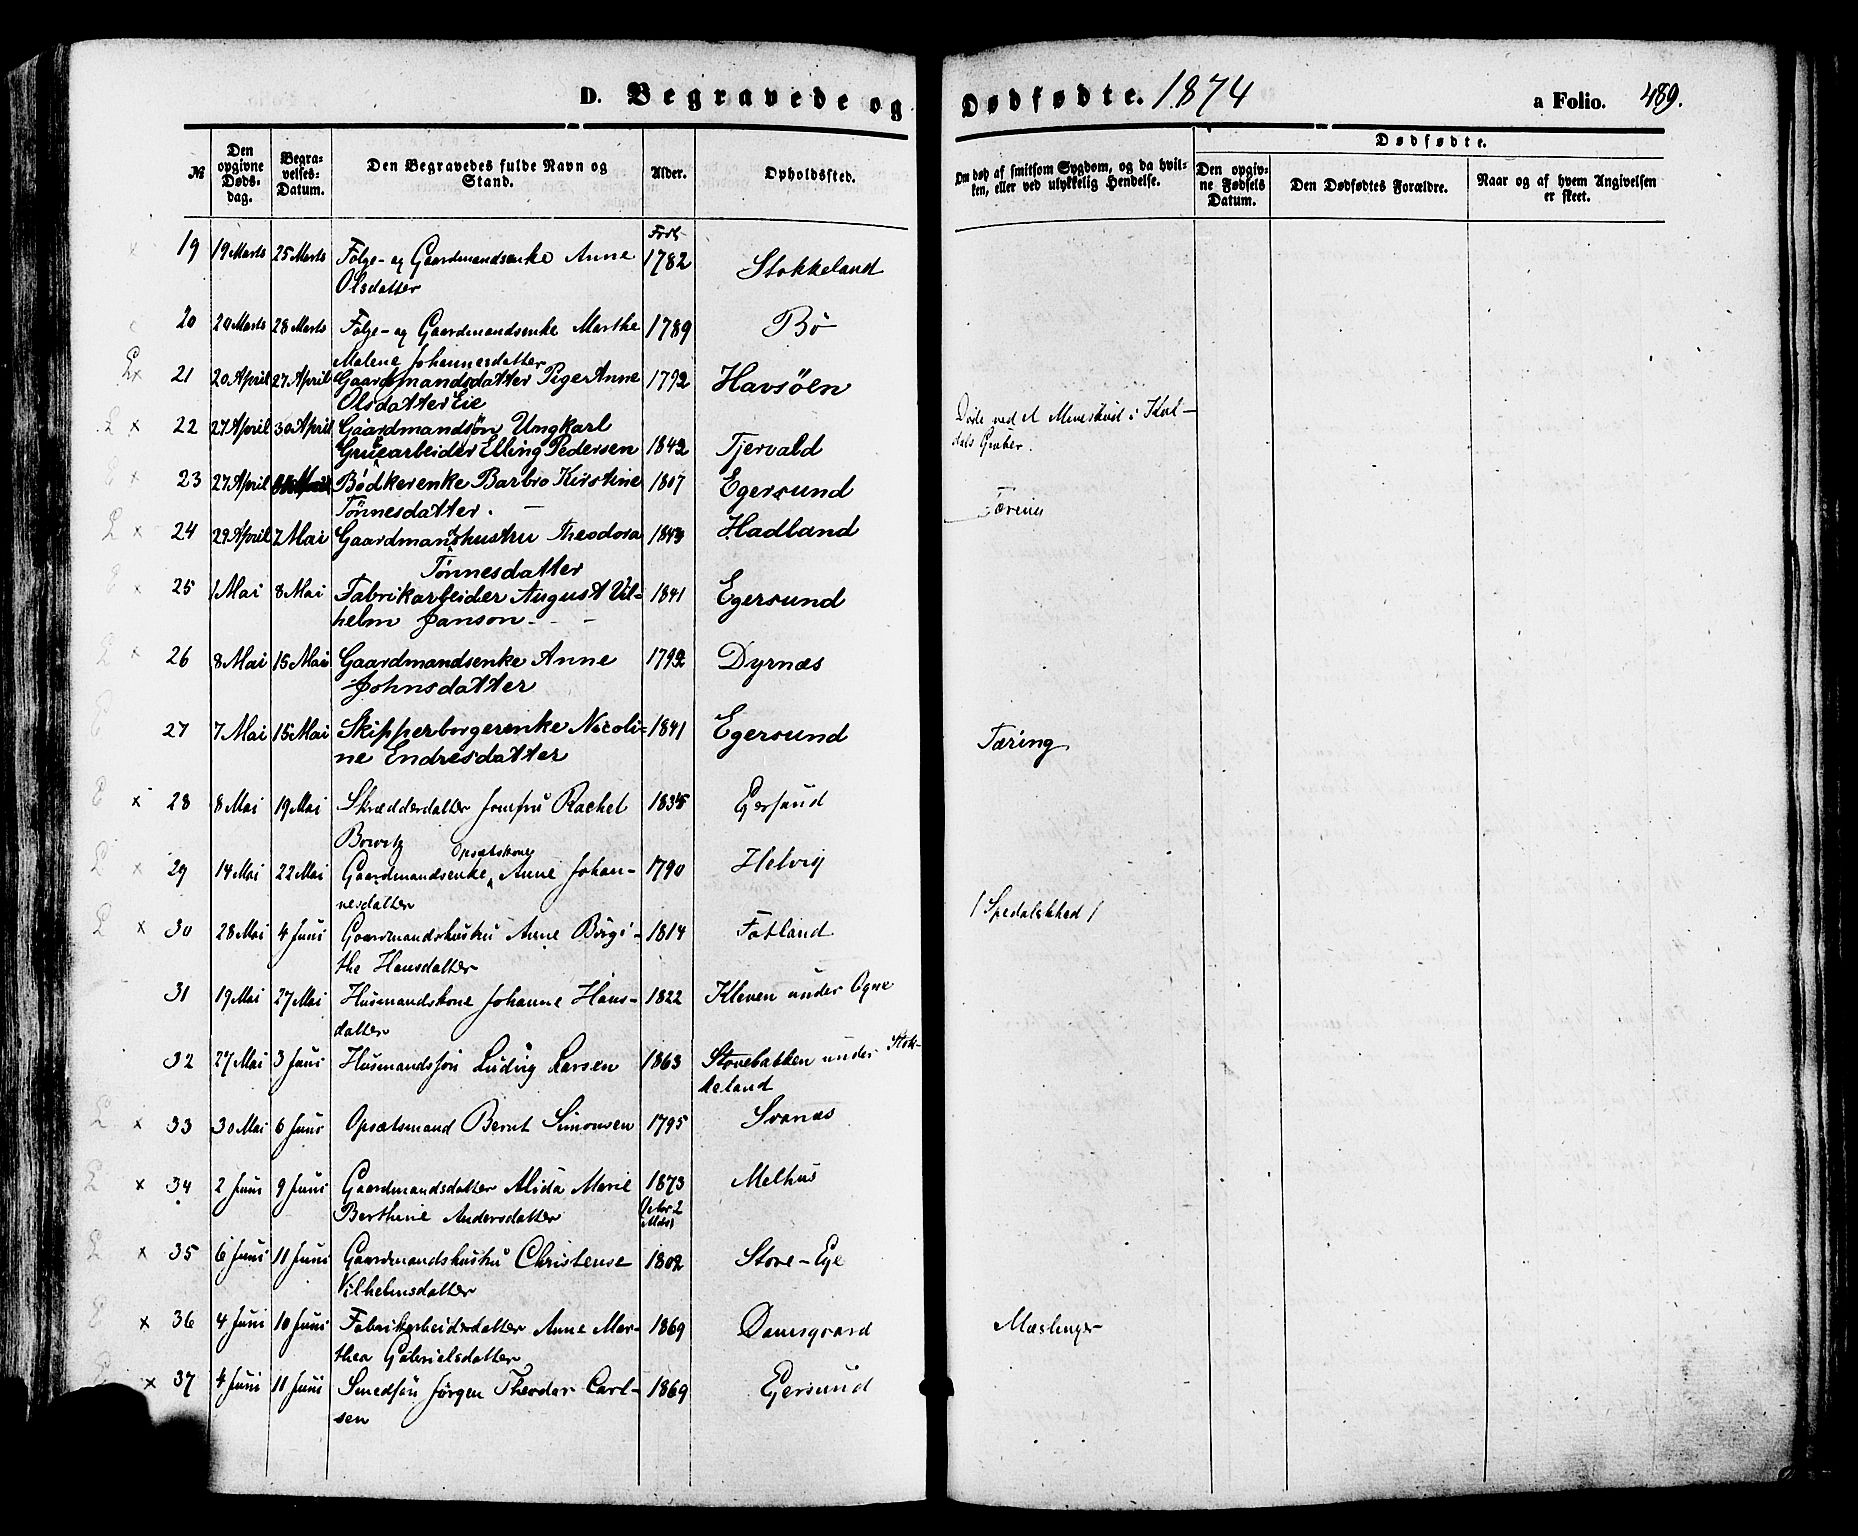 D. Begravede og Dødfødte. 1874 a Folio. 489.
Dødfødte.
№ Den opgivne Døds-dag. Begra-velses-Datum. Den Begravedes fulde Navn og Stand. Alder. Opholdsted. Om død af smitsom Sygdom, og da hvil-ken, eller ved ulykkelig Hendelse. Den opgiv-ne Fødsels Datum. Den Dødfødtes Forældre. Naar og af hvem Angivelsen er skeet.
19 19 Marts 25 Marts Følge- og Gaardmandsenke Anne 1782 Stokkeland
Olsdatter
20 20 Marts 28 Marts Følge- og Gaardmandsenke Marthe 1789 Bø
Malene Johannesdatter
21 20 April 27 April Gaardmandsdatter Pige Anne 1792 Havsöen
Olsdatter Eie
22 27 April 30 April Gaardmandsøn Ungkarl
Gruearbeider Elling Pedersen 1842 Tjervald
Døde ved et Mineskud i
dals Gruber.
23 27 April Bødkerenke Barbro Kirstine 1807 Egersund Tæring
Tönnesdatter.
24 29 April 7 Mai Gaardmandshustru Theodora 1843 Hadland
Tönnesdatter
25 1 Mai 8 Mai Fabrikarbeider August Vil- 1841 Egersund
helm Janson
26 8 Mai 15 Mai Gaardmandsenke Anne 1792 Dyrnæs
Johnsdatter
27 7 Mai 15 Mai Skipperborgerenke Nicoli- 1841 Egersund Tæring
ne Endresdatter
28 8 Mai 19 Mai Skrædderdatter Jomfru Rachel 1835 Egersund
Opsætskone
29 14 Mai 22 Mai Gaardmandsenke Anne Johan- 1790 Helvig
nesdatter
30 28 Mai 4 Juni Gaardmandshustru Anne Birgi- 1814 Fotland / Spedalskhed /
the Hansdatter
31 19 Mai 27 Mai Husmandskone Johanne Hans- 1822 Kleven under Ogne
datter
32 27 Mai 3 Juni Husmandssøn Ludvig Larsen 1863 Stovebakken under Stok-
keland
33 30 Mai 6 Juni Opsætsmand Bernt Simonsen 1795 Svanæs
34 2 Juni 9 Juni Gaardmandsdatter Alida Marie 1873 Melhus
Berthine Andersdatter
35 6 Juni 11 Juni Gaardmandshustru Christense 1802 Store-Eye
Vilhelmsdatter
36 4 Juni 10 Juni Fabrikarbeiderdatter Anne Mar- 1869 Damsgaard Mæslinger
thea Gabrielsdatter
37 4 Juni 11 Juni Smedsøn Jørgen Theodor Carl- 1869 Egersund
sen